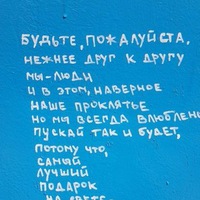 БУДЬТЕ, ПОЖАЛУЙСТА,
НЕЖНЕЕ ДРУГ К ДРУГУ
МЫ-ЛЮДИ
И В ЭТОМ, НАВЕРНОЕ
НАШЕ ПРОКЛЯТЬЕ
НО МЫ ВСЕГДА ВЛЮБЛЕН
ПУСКАЙ ТАК И БУДЕТ,
ПОТОМУ ЧТО,
САМЫЙ
ЛУЧШИЙ
ПОДАРОК